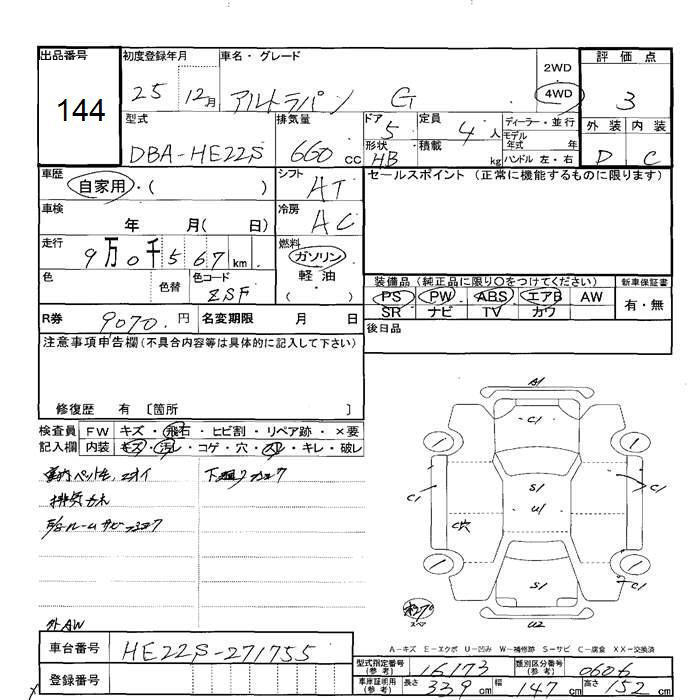 出品番号 初度登録年月 車名・グレード 2WD 評価点
144 25 12月 アルトラパン G 4WD 3
型式 排気量 ドア 定員 ディーラー・並行 外装 内装
DBA-HE22S 660cc 5 4人 モデル年式 年 D C
形状 HB 積載 kg ハンドル 左・右
車歴 自家用・( ) シフト AT セールスポイント (正常に機能するものに限ります)
車検 年 月( 日) 冷房 AC
走行 9万0千567km 燃料 ガソリン
色 色替 色コード ZSF 軽油 ( )
装備品 (純正品に限り○をつけてください) 新車保証書
PS PW ABS エアB AW 有・無
SR ナビ TV カワ
R券 9070.円 名変期限 月 日 後日品
注意事項申告欄(不具合内容等は具体的に記入して下さい)
修復歴 有 〔箇所 〕
検査員 FW キズ・飛石・ヒビ割・リペア跡・×要
記入欄 内装 キズ・汚レ・コゲ・穴・スレ・キレ・破レ
下廻り
排気
外AW
A1
C1
C1
C1
S1
U1
C穴
S1
C1
U2
A-キズ E-エクボ U-凹み W-補修跡 S-サビ C-腐食 XX-交換済
車台番号 HE22S-271755
登録番号
型式指定番号(参考) 16173 類別区分番号(参考) 0606
車庫証明用(参考) 長さ 339cm 幅 147cm 高さ 152cm